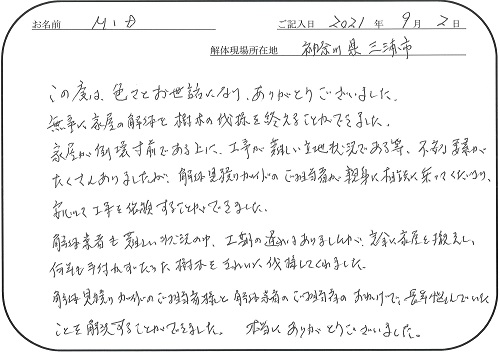 お名前 M・D ご記入日 2021 年 9 月 2 日
解体現場所在地 神奈川県三浦市
この度は、色々とお世話になり、ありがとうございました。
無事に家屋の解体と樹木の伐採を終えることができました。
家屋が倒壊寸前である上に、工事が難しい立地状況である等、不利な要素が
たくさんありましたが、解体見積りガイドのご担当者が親身に相談に乗ってくださり、
安心して工事を依頼することができました。
解体業者も難しい状況の中、工期の遅れはありましたが、完全に家屋を撤去し、
何年も手付かずだった樹木をきれいに伐採してくれました。
解体見積りガイドのご担当者様と解体業者のご担当者のおかげで、長年悩んでいた
ことを解決することができました。 本当にありがとうございました。